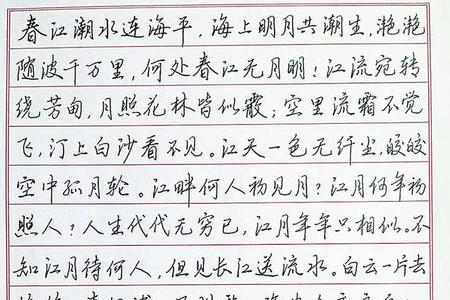 春江潮水连海平，海上明月共潮生，滟滟
随波千万里，何处春江无月明！江流宛转
绕芳甸，月照花林皆似霰；空里流霜不觉
飞，汀上白沙看不见。江天一色无纤尘，皎皎
空中孤月轮。江畔何人初见月？江月何年初
照人？人生代代无穷已，江月年年只相似。不
知江月待何人，但见长江送流水。白云一片去